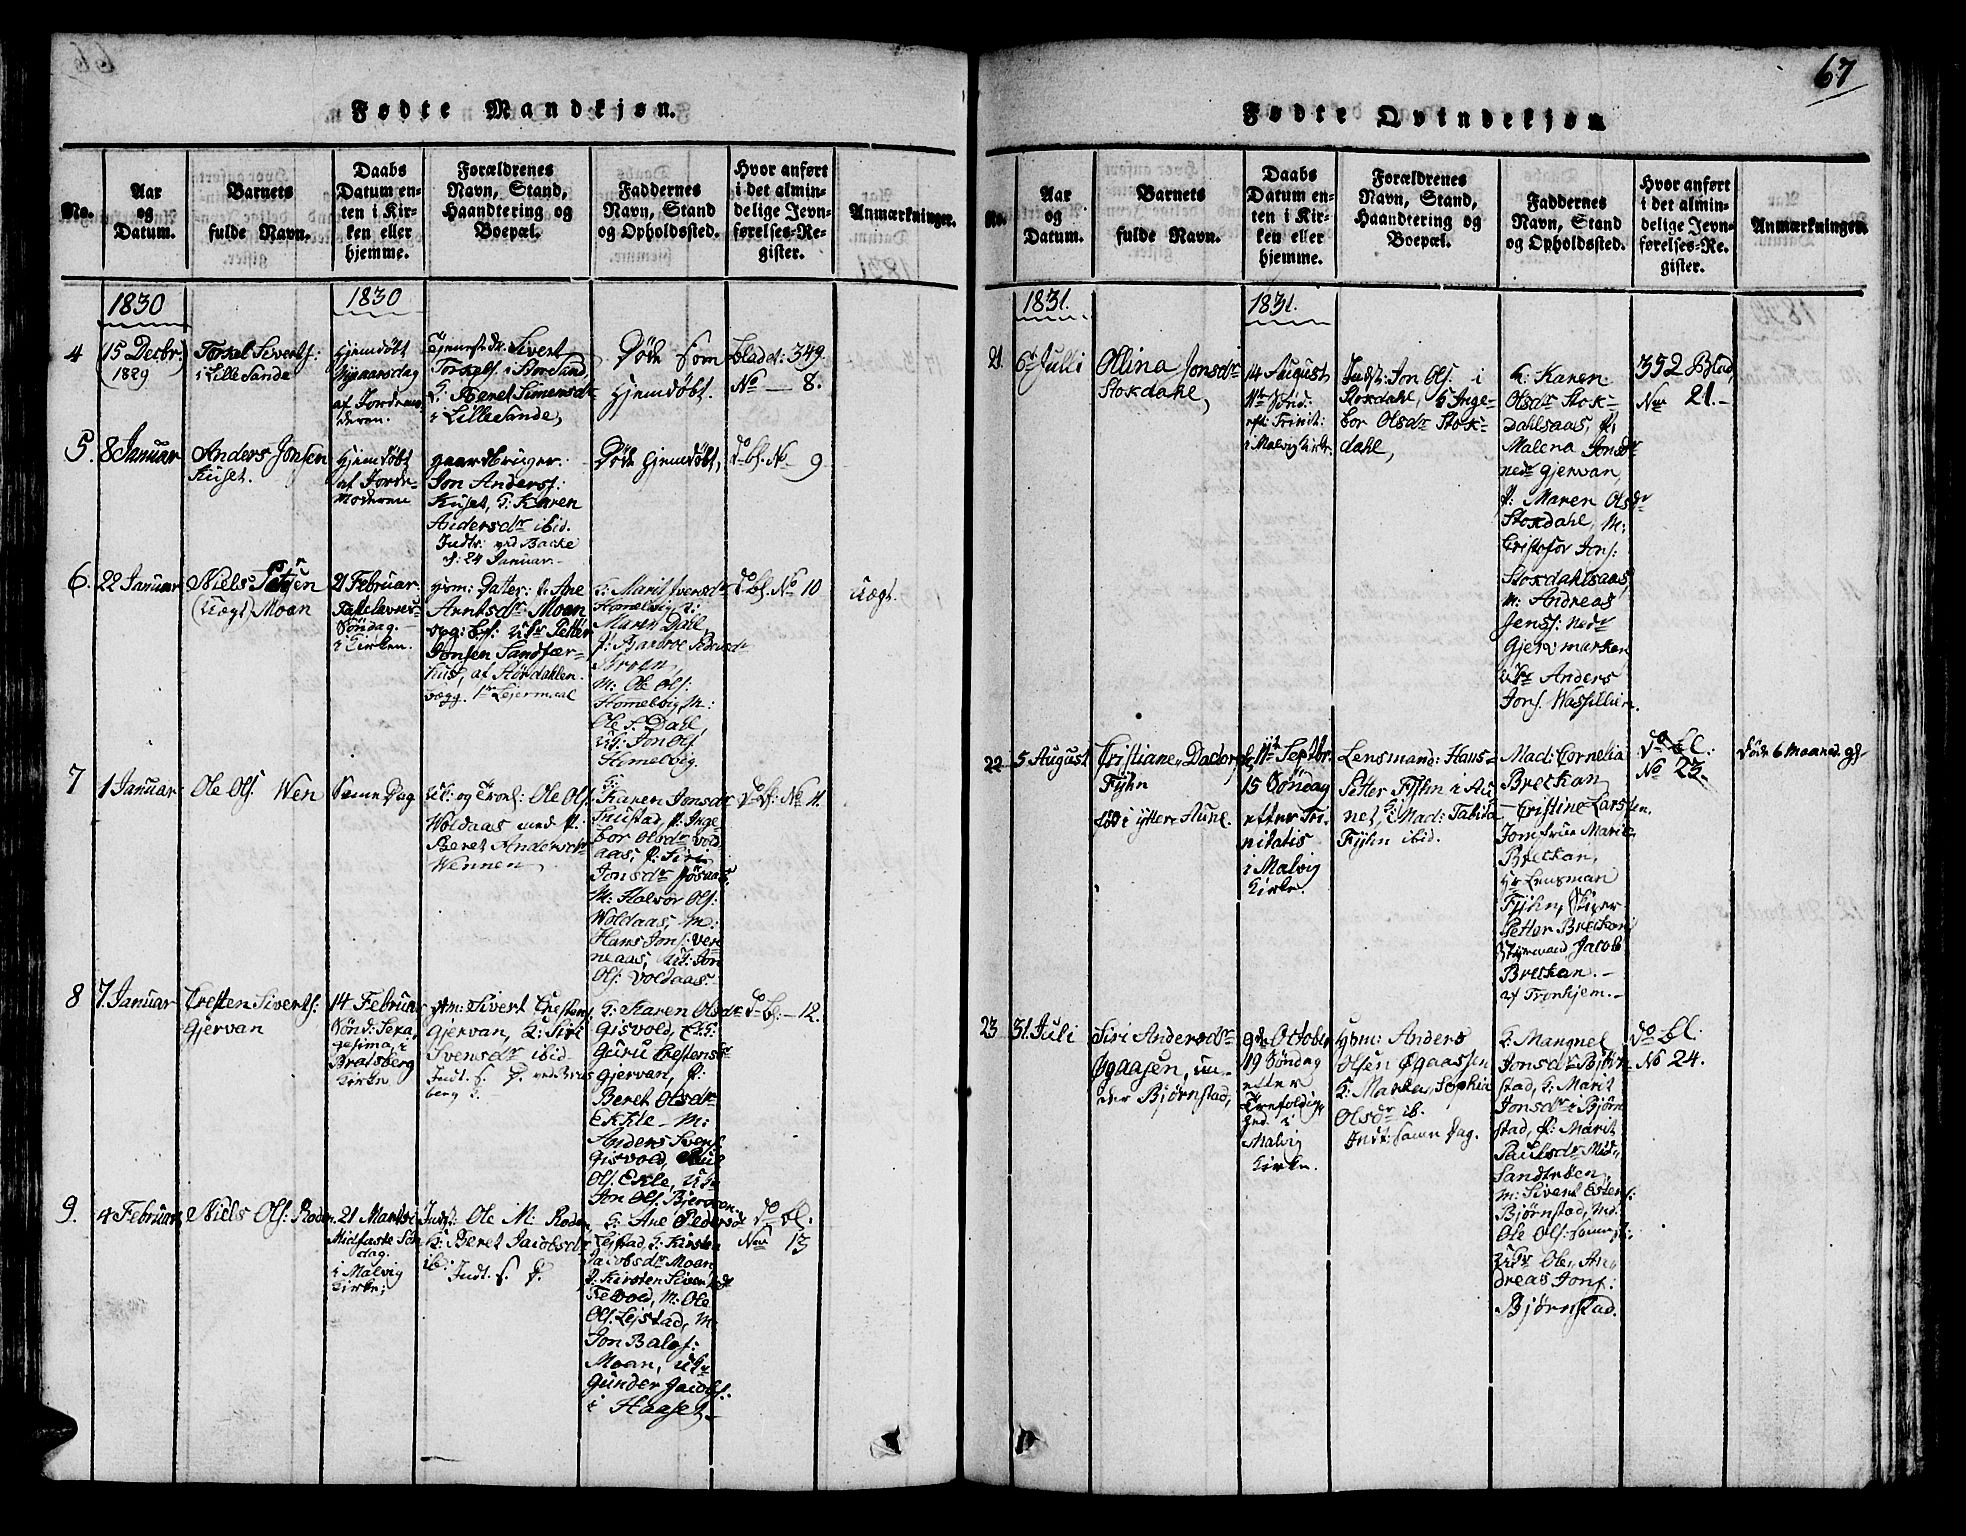 67
Fødte Mandkjøn.
No.
Aar
og
Datum.
Barnets
fulde Navn.
Daabs
Datum en-
ten i Kir-
ken eller
hjemme.
Forældrenes
Navn, Stand,
Haandtering og
Boepæl.
Faddernes
Navn, Stand
og Opholdssted.
Hvor anført
i det almin-
delige Jevn-
førelses-Re-
gister.
Anmærkninger.
1830
1830
4
(15 Decbr)
1829
Torkel Sivertsː
i Lille Sande
Hjemdøbt
Nyaarsdag
af Jordemo-
deren.
Tjenestdr. Sivert
Torkels i Storsand
G: Beret Simensdr
i Lillesande,
Døde som
hjemdøbt.
bladet: 349
No — 8.
5.
8 Januar
Anders Jonsen
Huset.
Hjemdøbt
af Jorde-
moderen
gaardbruger:
Jon Andersſ:
Huset, G: Karen
Andersdr ibid.
Indtr: ved Backe
24 Januar.
Døde hjemdøbt,
do bl. No 9
6.
22 Januar
Niels Petersen
(Uægt) Moan
21 Februar
Søndag.
i Kirken.
Datter: P: Ane
Arntsdr Moan
Petter
Jonsen Sandfær-
hus, af Størdahlen.
begg. 1te Lejermaal
G: Marit Iversdr
Homelvig,
Maren Dahl
M: Ole Olſ.
Homelvig, M:
Ole S. Dahl
Uk: Jon Olſ.
Homelvig.
do bl. No 10
Uægt.
7
1 Januar
Ole Olſ. Wen
Samme Dag
Uk: og Trol: Ole Olſ.
Woldaas med P:
Beret Andersdr
Wennen
G:
Karen Jonsdr
P: Inge-
bor Olsdr vold
aas, P: Siri
Jonsdr
M: Halvor Olſ:
Woldaas, M:
Hans Jonſ:
Uk: Jon
Olſ. Voldaas.
do bl. No 11.
8
7 Januar
Cresten Sivertſ:
Gjervan
14 Februar
Sønd: Sexa
gesima, i
Bratsberg
Kirke
Sivert Crestens
Gjervan, G: Siri
Svensdr ibid
Indt. S. D. ved Brats
berg
G: Karen Olsdr
Gisvold,
Guru Crestensdr
Gjervan, P:
Beret Olsdr
Ekkle — M:
Anders
Gisvold,
Olſ. Ekle,
Jon Olſ. Bjerkan.
do bl. — 12.
9.
4 Februar
Niels Olſ: Roden
21 Marts
Midfaste Søn
dag.
i Malvig
Kirke;
Indſ: Ole M: Roden
G: Beret Jacobsdr
ib: Indt. S. D.
G: Ane Pedersdr
Leistad, G: Kirsten
Jacobsdr Moan
P: Kirsten
M: Ole
Olſ. Leistad, M:
Jon
Moan,
Gunder Jacobſ:
i Haaset
do bl.
No 13
Fødte Qvindekjøn
No.
Aar
og
Datum.
Barnets
fulde Navn.
Daabs
Datum en-
ten i Kir-
ken eller
hjemme.
Forældrenes
Navn, Stand,
Haandtering og
Boepæl.
Faddernes
Navn, Stand
og Opholdssted.
Hvor anført
i det almin-
delige Jevn-
førelses-Re-
gister.
Anmærkningen
1831.
1831.
21.
6t Julli
Ollina Jonsdr
Stokdahl,
14 August
11te Sønd:
eft: Trinit:
i Malvig Kirke
Indſ: Jon Olſ. i
Stokdahl, G Inge-
bor Olsdr Stok-
dahl,
G. Karen
Olsdr Stok-
dahlsaas, P:
Malena Jonsdr
nedr Gjervan,
P: Maren Olsdr
Stokdahl, M:
Cristofor Jonſ:
Stokdahlsaas,
M: Andreas
Jensſ: nedr
Gjervmarken
Anders
Jonſ.
352 Blad,
No 21.-
22
5 August
Cristiane Dadorpha
Fyhn
i yttere Aune.
11te Septbr.
15 Søndag
efter Tri-
nitatis
i Malvig
Kirke.
Lensmand: Hans
Petter Fyhn i Au
net, G: Mad: Tabita
Fyhn ibid.
Mad: Cornelia
Breckan
Cristine Larssen.
Jomfrue Marie
Breckan,
Hr Lensman
Fyhn,
Petter Breckan
Jacob
Breckan.—
af Tronhjem.—
do bl:
No 23.
Døde 6 Maaned gl.
23
31 Juli
Siri Andersdr
Øgaasen, un-
der Bjørnstad,
9de October
19 Søndag
efter
Trefoldig-
hed. i
Malvig
Kirke.
Anders
Olsen Øgaassen
G: Marta Sophia
Olsdr ib.
Indt: samme Dag.
G: Mangnel
Jonsdr i Bjørn-
stad, G: Marit
Jonsdr i Bjørn
stad, P: Marit
Paulsdr Mid-
Sandtræen,
M: Sivert Estenſ:
Bjørnstad, M:
Ole Olſ:
Ole, An-
dreas Jonſ:
Bjørnstad.
do bl:
No 24.